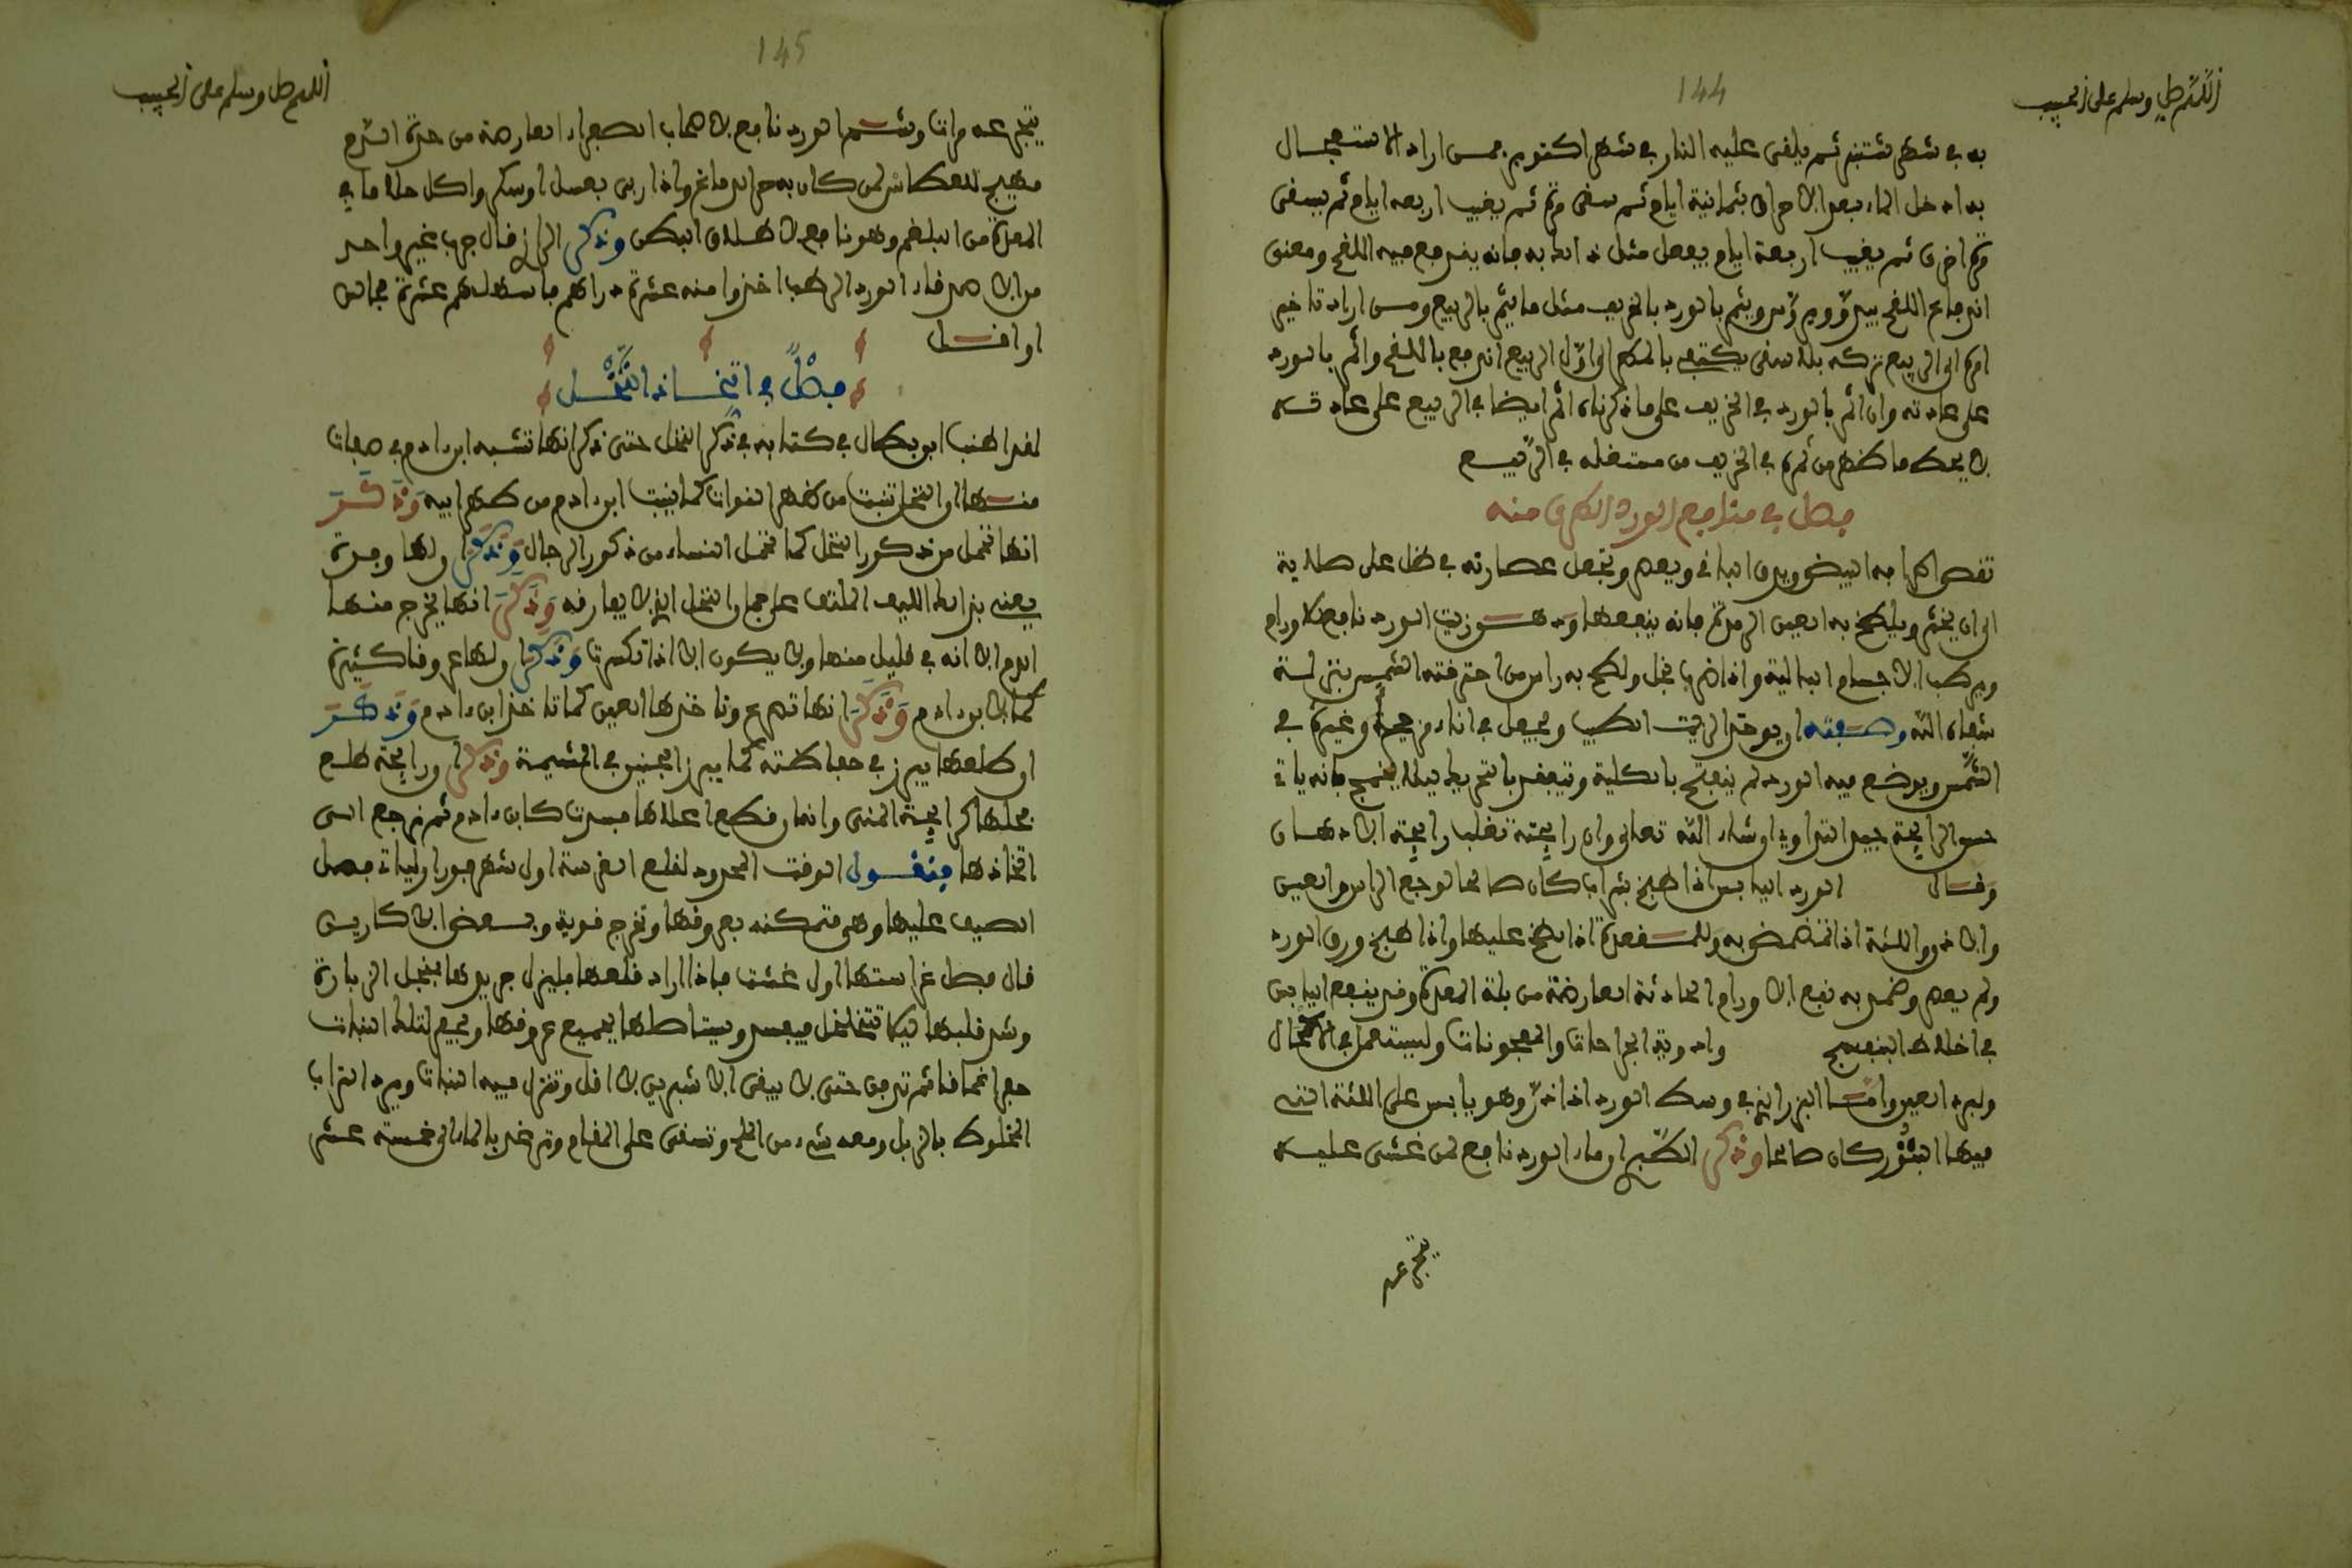 144
اللهم صل وسلم على الحبيب
به في شهر شتنبر ثم يلقى عليه النار في شهر اكتوبر فمن اراد الاستعجال
به ادخل الماء بعد الاحراق بثمانية ايام ثم سقى مرة ثم يغيب اربعة ايام ثم يسقى
مرة اخرى ثم يغيب اربعة ايام يفعل مثل ذلك به فانه يندفع فيه اللقح ومعنى
اندفاع اللقح يبدو ويثم بالورد بالخريف مثل ما يثم بالربيع ومن اراد تاخير
امره الى الربيع تركه بلا سقى يكتفى بالمطر الى اول الربيع اندفع باللقح واثمر بالورد
على عادته وان اثمر بالورد في الخريف على ما ذكرناه اثمر ايضا في الربيع على عادته
لا يحط ما ظهر من ثمره في الخريف من مستغله في الربيع
فصل في منافع الورد الطرى منه
تقص اطرافه البيض ويدق الباقي ويعصر وتجعل عصارته في ظل على صلاية
الى ان يخثر ويلطخ به العين الرمدة فانه ينفعها ودهنه وزيت الورد نافع للاورام
ويرطب الاجسام البالية واذا ضرب بالخل ولطخ به راس من احرقته الشمس بتنزلة
شفاه الله وصفته ان يوخذ الزيت الطيب ويجعل في اناء وغيره في
الشمس ويوضع فيه الورد لم ينفتح بالكلية وتتعقد بالتحريك ليلا فانه ياتي
حسن الرايحة جيد التداوي ان شاء الله تعالى وان رايحته تغلب رايحة الادهان
وقال الورد اليابس اذا طبخ بشراب كان صالحا لوجع الراس والعين
والاذن واللثة اذا تمضمض به وللمقعدة اذا لطخ عليها واذا طبخ ورق الورد
ولم يعصر وضمد به نفع الاورام الحادثة العارضة من بلة المعدة وقد ينفع اليابس
في اخلاط البنفسج وادوية الجراحات والمعجونات وليستعمل في الاكحال
ولبرد العين واما البزر الذي في وسط الورد اذا ذر وهو يابس على اللثة التي
فيها البثور كان صالحا وذكر الطبري ان ماء الورد نافع لمن غشي عليه
يتجرعه
145
اللهم صل وسلم على الحبيب
يتجرعه مراتا وشم الورد نافع لاصحاب الصفراء العارضة من حدة الدم
مهيج للعطاش لمن كان به حرارة دماغ واذا ربي بعسل او سكر واكل جلا ما في
المعدة من البلغم وهو نافع لاطلاق البطن وذكر الرازي قال جرب غير واحد
من الاصدقاء الورد الرطب اخذوا منه عشرة دراهم فاسهلهم عشرة مجالس
او اقل
فصل في اتخاذ النخل
لقد اطنب ابو بطال في كتابه في ذكر النخل حتى ذكر انها تشبه ابن ادم في صفات
منها ان النخل تنبت من ظهر النوات كما ينبت ابن ادم من ظهر ابيه وذكر
انها تحمل من ذكور النخل كما تحمل النساء من ذكور الرجال وذكر ان لها وبرة
يعني بذلك الليف الملتف على جمار النخل الذي لا يفارقه وذكر انها يخرج منها
الدم الا انه في قليل منها ولا يكون الا اذا تكسرت وذكر ان لها عروقا كثيرة
كما لابن ادم وذكر انها تصرع وتاخذها العين كما تاخذ ابن ادم وذكر
ان طلعها يبرز في حفاظته كما يبرز الجنين في المشيمة وذكر ان رايحة طلع
فحلها كرايحة المني وانها ان قطع اعلاها فسدت كابن ادم ثم نرجع الى
اتخاذها فنقول الوقت المحدود لقلع الغرسة اول شهر فبراير ليات فصل
الصيف عليها وهي متمكنه بعروقها وتخرج قوية وبعض الاكاريين
قال فصل غراستها اول غشت فاذا اراد قلعها فليزل جريدها بمنجل الزبارة
وشد قلبها ليلا تتخلخل فيفسد وتستاصلها بجميع عروقها ويحفر لتلك النبات
حفر اعماقا ثم تردم حتى لا يبقى الا شبرين لا اقل وتنزل فيه النبات ويرد التراب
المخلوط بالزبل ومعه شيء من الملح وتسقى على المقام وترغد بالماء الى خمسة عشر